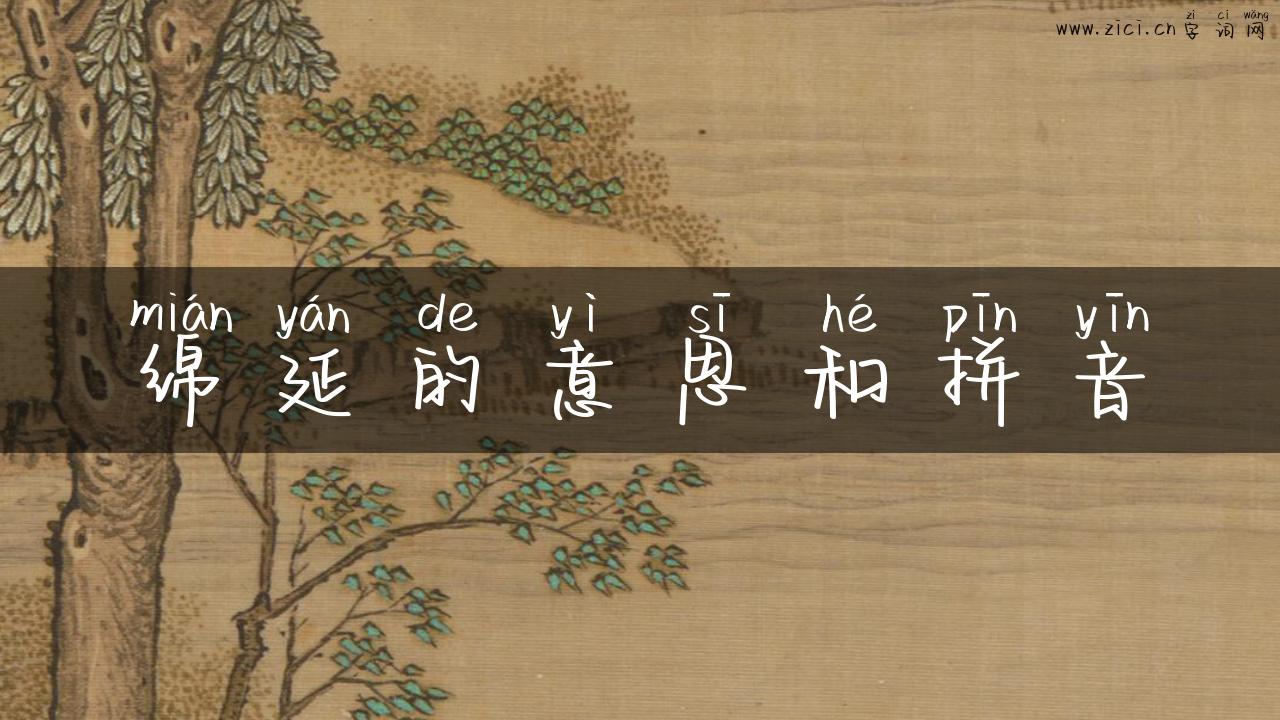 zì cí wǎng
www.zici.cn 字词网
mián yán de yì sī hé pīn yīn
绵延的意思和拼音